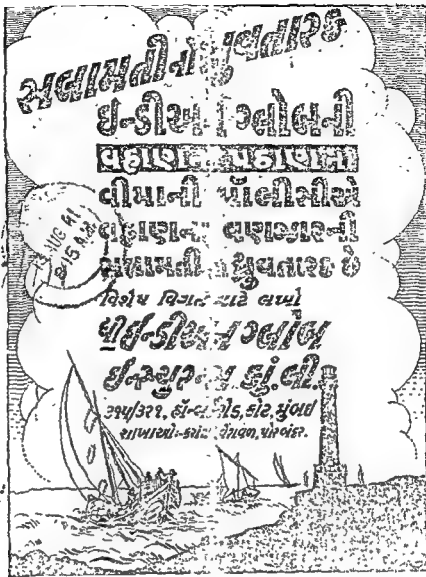 સલામતીનો ધ્રુવતારક
ઇન્ડીઅન ગ્લોબની
વહાણના પઠાણના
વીમાની પૉલીસીએ
વહાણના વણજારની
સલામતીના ધ્રુવતારક છે
વિશેષ વિગત માટે લખો
ધી ઇન્ડીઅન ગ્લોબ
ઈન્સ્યુરન્સ કું. લી.
૩૧૫/૩૨૧, હૉર્નબી રોડ, કોટ, મુંબઇ
શાખાઓ:- વેરાવળ, પોરબંદર.
AUG 61
8-15 A.M.